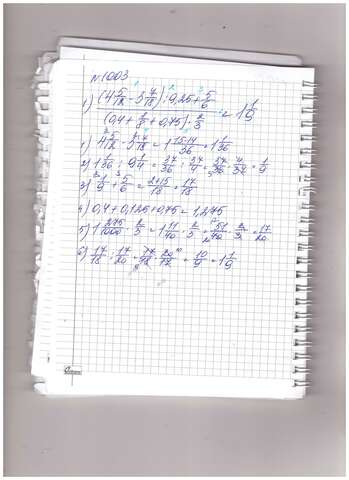 № 1003
1) ((4 5/12 - 3 7/18) : 0,25 + 5/6) / ((0,4 + 1/8 + 0,75) · 2/3) = 1 1/9
1) 4 5/12 - 3 7/18 = 1 15-14/36 = 1 1/36
2) 1 1/36 : 9 1/4 = 37/36 : 37/4 = 37/36 · 4/37 = 1/9
3) 1/9 + 5/6 = 2+15/18 = 17/18
4) 0,4 + 0,125 + 0,75 = 1,275
5) 1 275/1000 · 2/3 = 1 11/40 · 2/3 = 51/40 · 2/3 = 17/20
6) 17/18 : 17/20 = 17/18 · 20/17 = 10/9 = 1 1/9